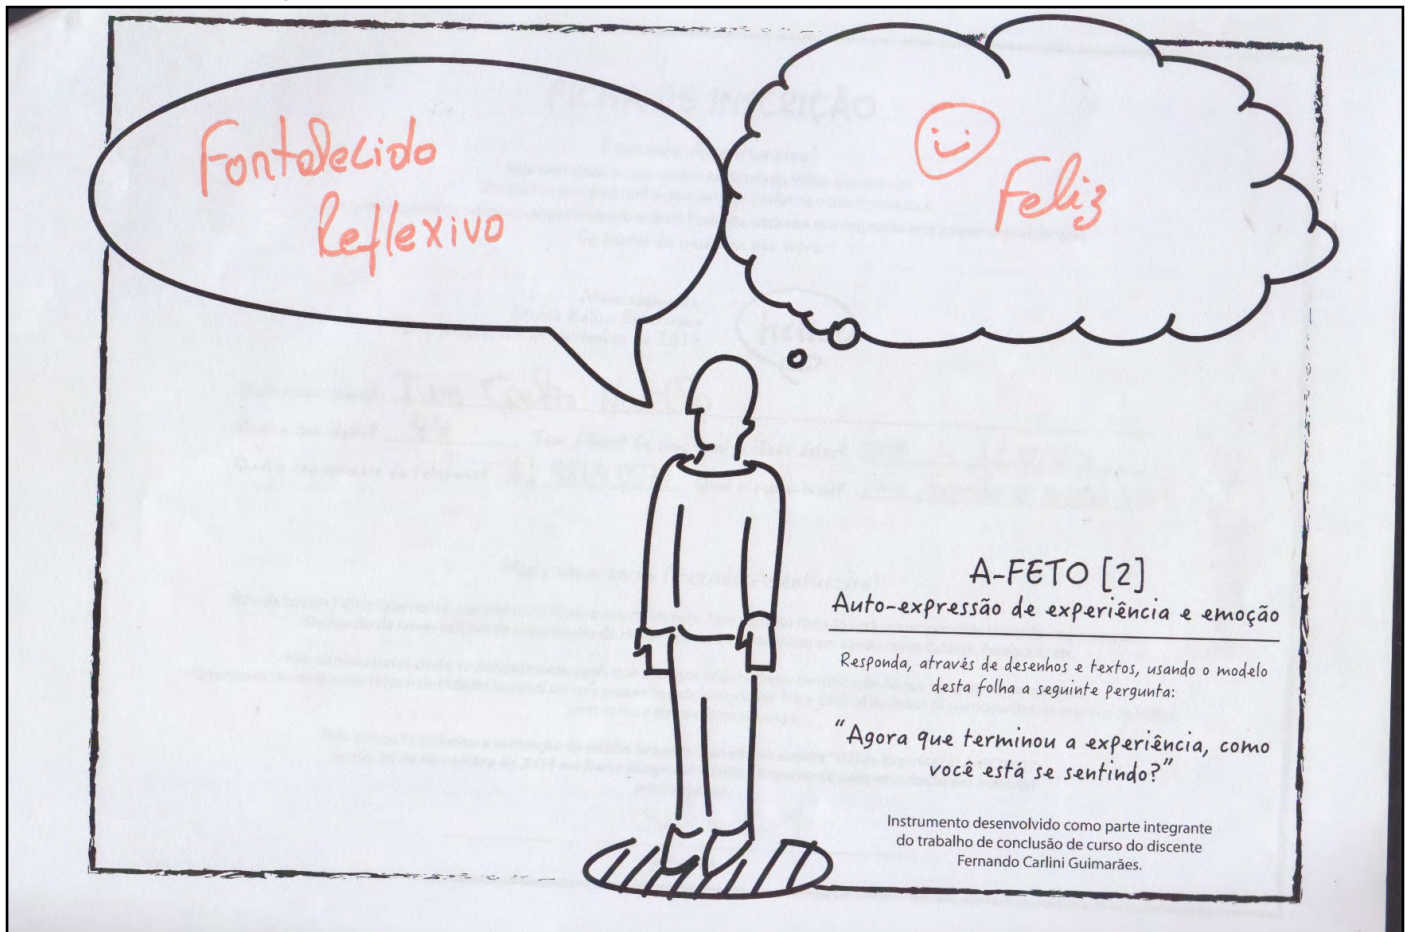 Fontalecido
Reflexivo
Feliz
A-FETO [2]
Auto-expressão de experiência e emoção
Responda, através de desenhos e textos, usando o modelo
desta folha a seguinte pergunta:
"Agora que terminou a experiência, como
você está se sentindo?"
Instrumento desenvolvido como parte integrante
do trabalho de conclusão de curso do discente
Fernando Carlini Guimarães.